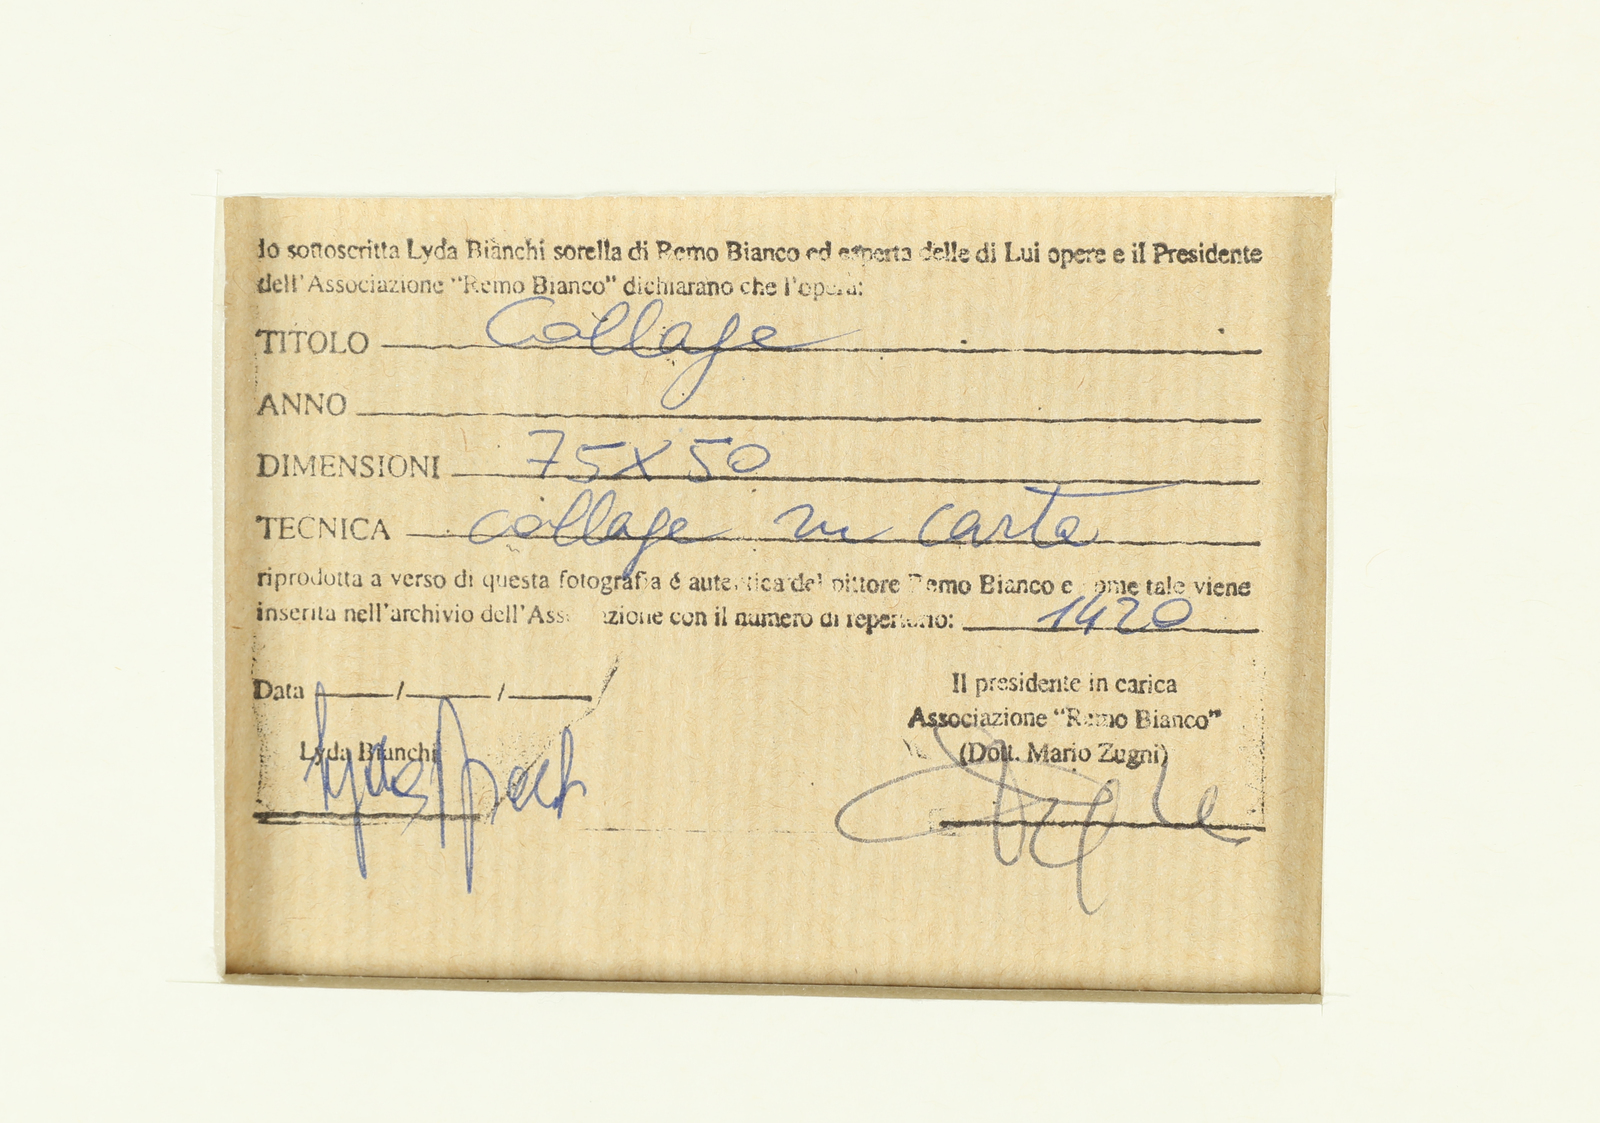 Io sottoscritta Lyda Bianchi sorella di Remo Bianco ed esperta delle di Lui opere e il Presidente
dell'Associazione "Remo Bianco" dichiarano che l'opera:
TITOLO Collage
ANNO
DIMENSIONI 75X50
TECNICA collage su carta
riprodotta a verso di questa fotografia é autentica del pittore Remo Bianco e come tale viene
inserita nell'archivio dell'Associazione con il numero di repertorio: 1420
Data / /
Lyda Bianchi
Lyda Bianchi
Il presidente in carica
Associazione "Remo Bianco"
(Dott. Mario Zugni)